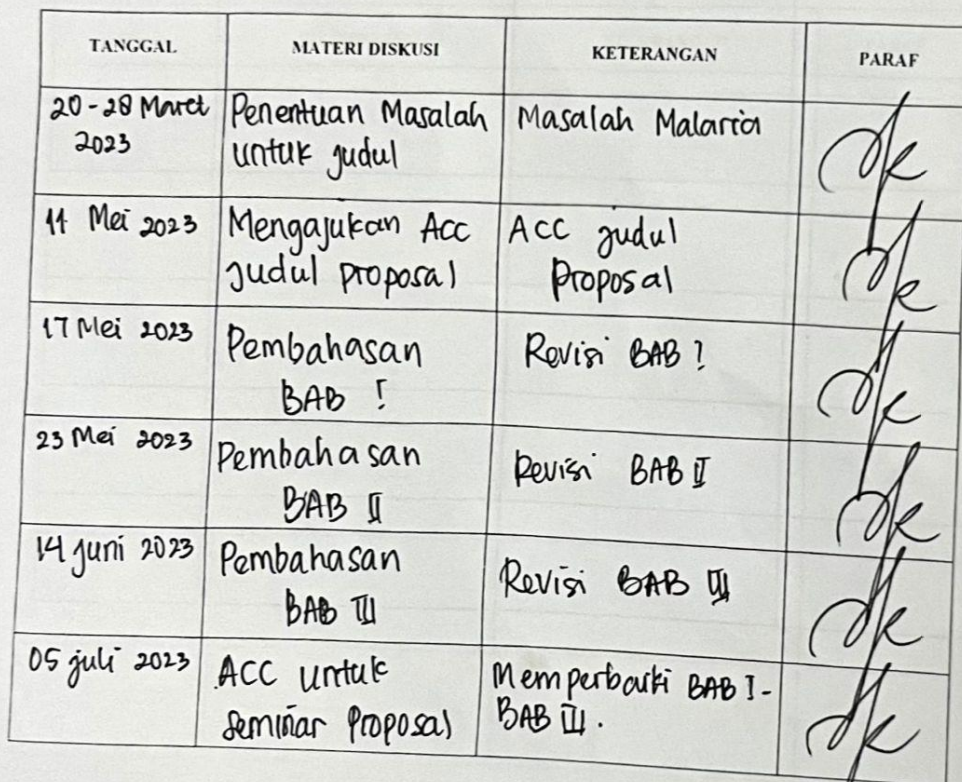 TANGGAL MATERI DISKUSI KETERANGAN PARAF
20-28 Maret 2023 Penentuan Masalah untuk judul Masalah Malaria
11 Mei 2023 Mengajukan Acc judul proposal ACC judul Proposal
17 Mei 2023 Pembahasan BAB I Revisi BAB I
23 Mei 2023 Pembahasan BAB II Revisi BAB II
14 juni 2023 Pembahasan BAB III Revisi BAB III
05 juli 2023 ACC untuk seminar Proposal Memperbaiki BAB I- BAB III.